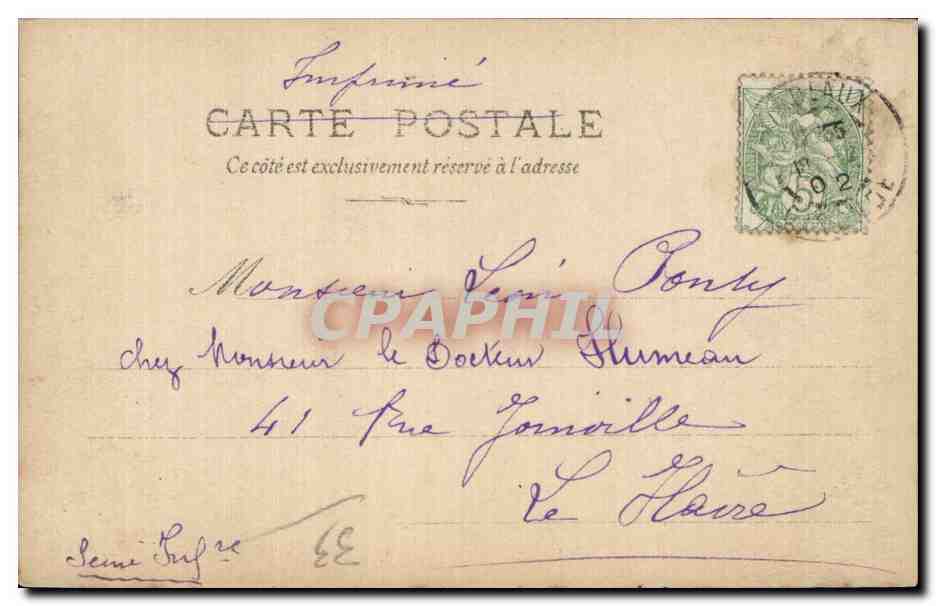 Imprimé
CARTE POSTALE
Ce côté est exclusivement réservé à l'adresse
Monsieur Léon
chez Monsieur le Docteur
41 Rue Joinville
Le Havre
Seine Infre
33
5
02
CPAPHIL